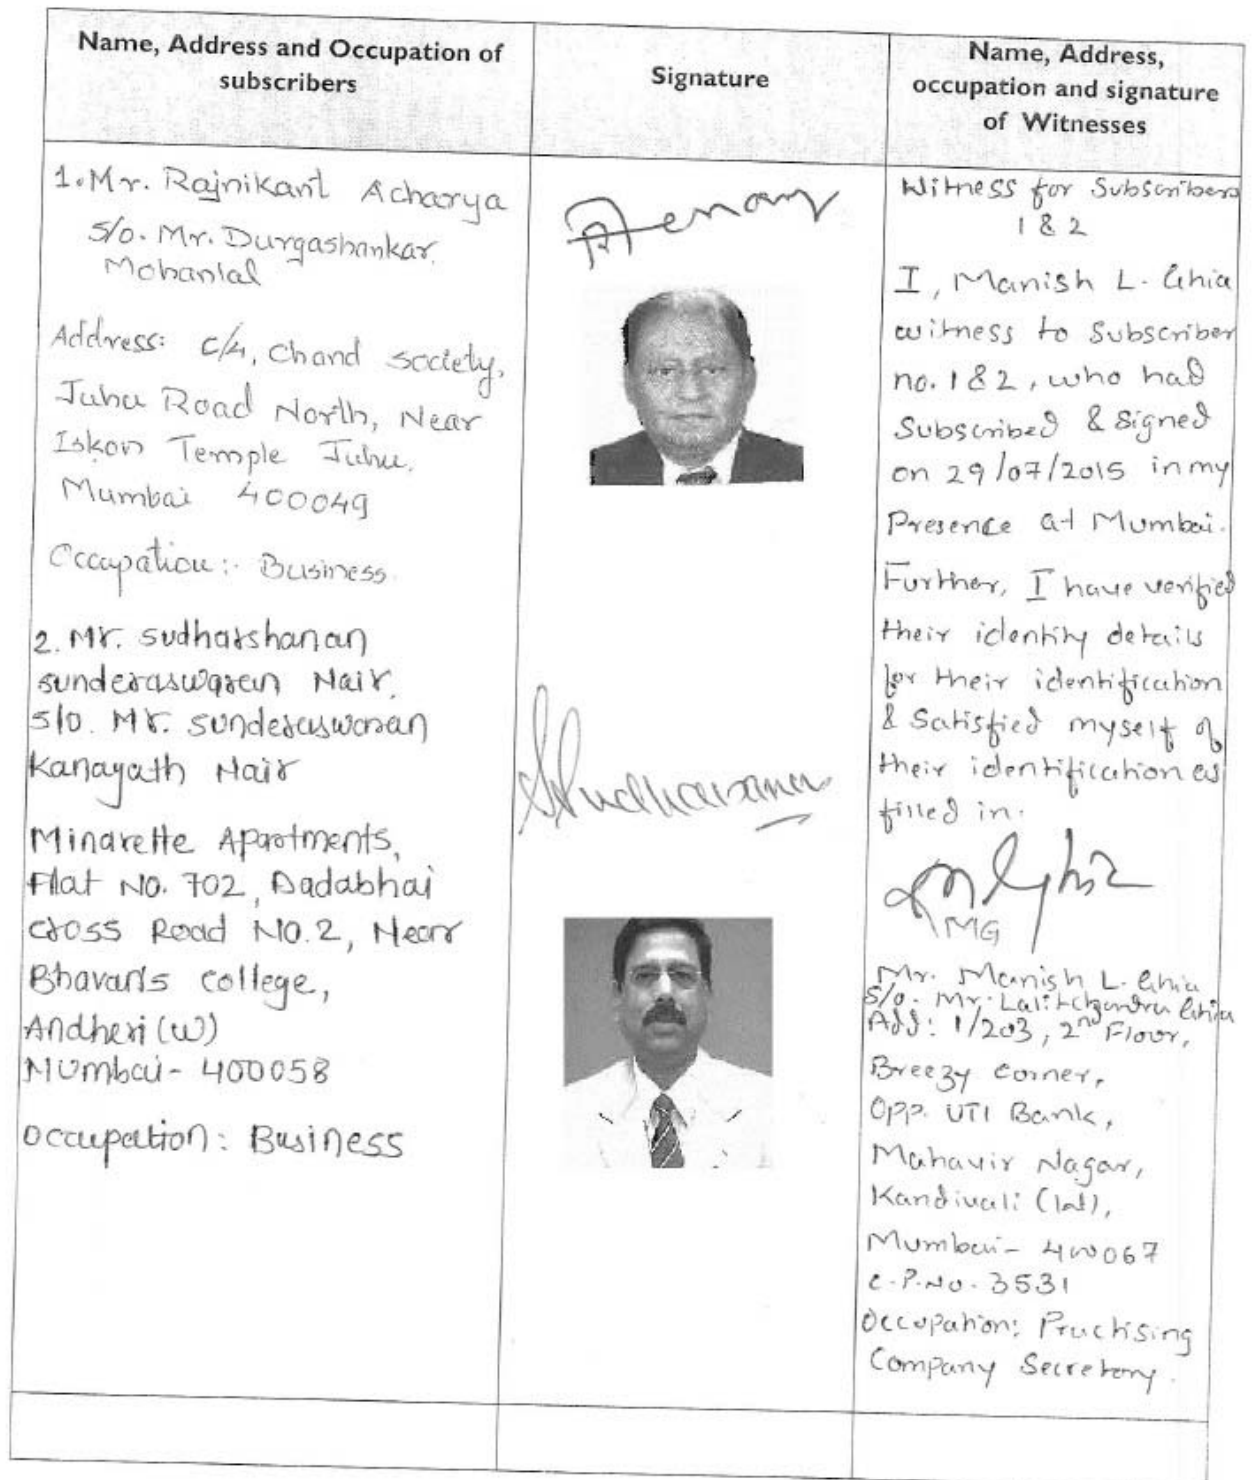 Name, Address and Occupation of
subscribers
Signature
Name, Address,
occupation and signature
of Witnesses
1. Mr. Rajnikant Acharya
S/o. Mr. Durgashankar
Mohanlal
Address: C/4, Chand Society,
Juhu Road North, Near
Iskon Temple Juhu,
Mumbai 400049
Occupation:- Business
2. Mr. Sudharshanan
Sunderaswaren Nair,
S/o. Mr. Sunderaswaran
Kanayath Nair
Minarette Apartments,
Flat No. 702, Dadabhai
Cross Road No.2, Near
Bhavan's College,
Andheri (W)
Mumbai- 400058
Occupation: Business
Witness for Subscribers
1 & 2
I, Manish L. Ghia
witness to Subscriber
no. 1 & 2, who had
Subscribed & Signed
on 29/07/2015 in my
Presence at Mumbai.
Further, I have verified
their identity details
for their identification
& Satisfied myself of
their identification as
filled in.
MG
Mr. Manish L. Ghia
S/o. Mr. Lalitchandra Ghia
Add: 1/203, 2nd Floor,
Breezy Corner,
Opp. UTI Bank,
Mahavir Nagar,
Kandivali
Mumbai- 400067
C.P.No. 3531
Occupation: Practising
Company Secretary.